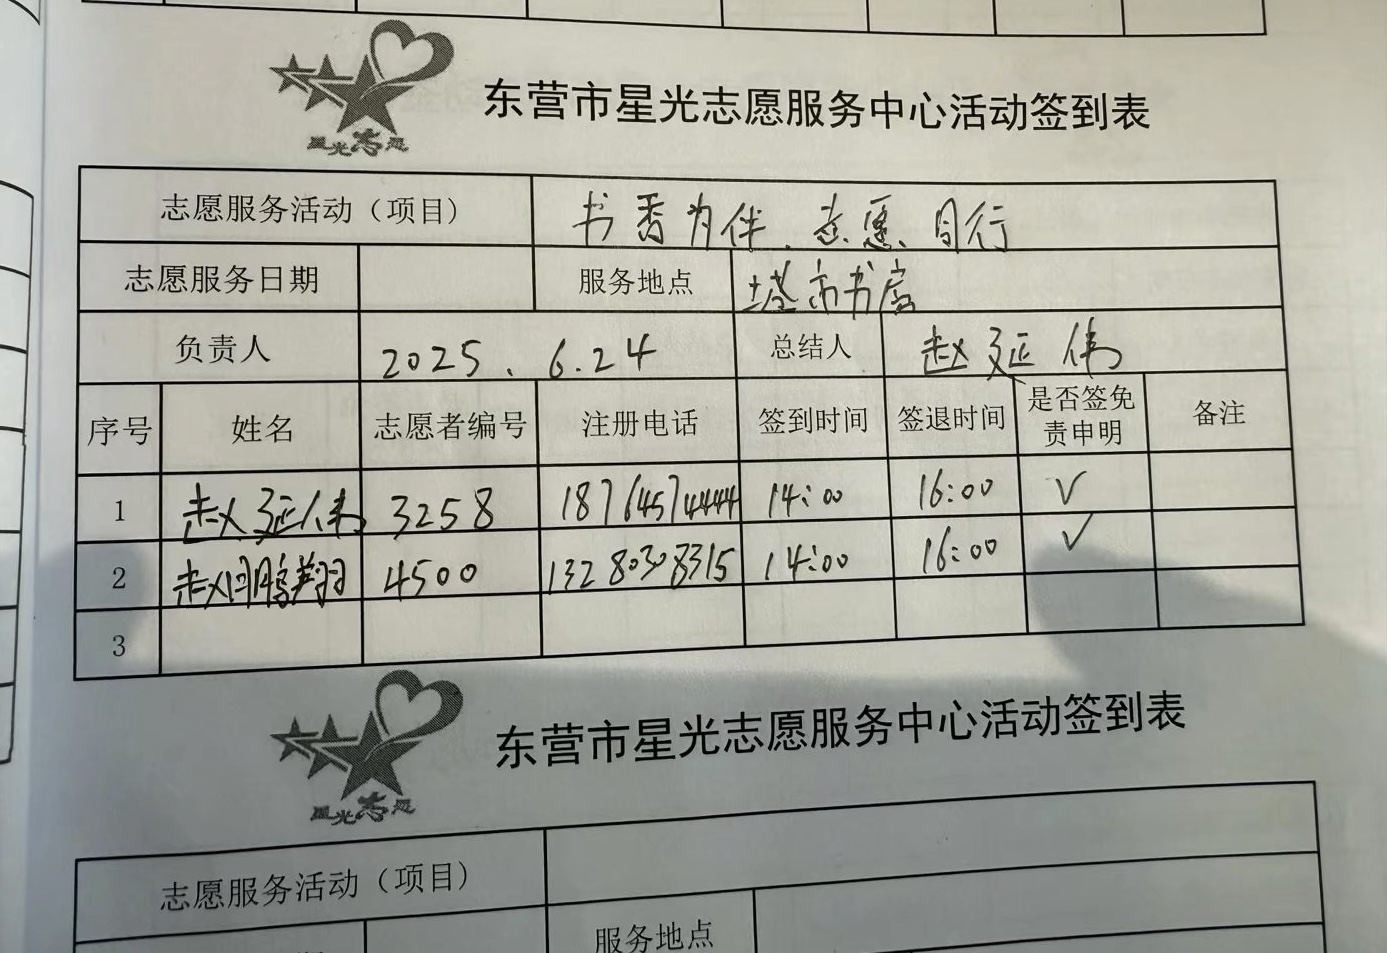 星光志愿
东营市星光志愿服务中心活动签到表
志愿服务活动（项目） 书香为伴、志愿同行
志愿服务日期 服务地点 塔市书房
负责人 2025.6.24 总结人 赵延伟
序号 姓名 志愿者编号 注册电话 签到时间 签退时间 是否签免责申明 备注
1 赵延伟 3258 18764574444 14:00 16:00 √
2 赵鹏翔 4500 13280308315 14:00 16:00 √
3
星光志愿
东营市星光志愿服务中心活动签到表
志愿服务活动（项目）
服务地点